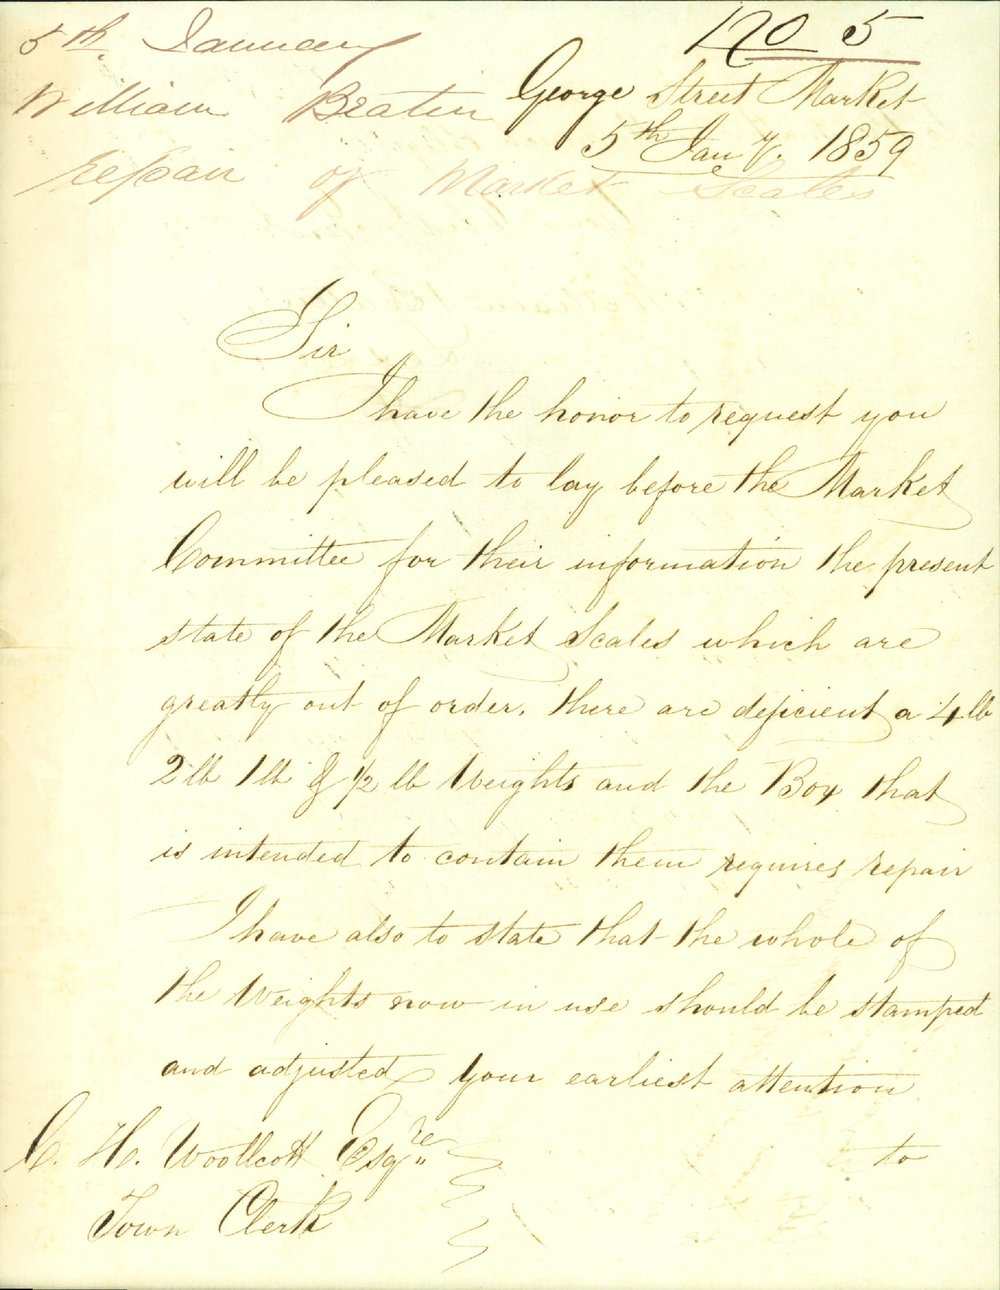 No 5
5th. January
William Beaton
Repair of Market Scales
George Street Market
5th Jany. 1859
Sir
I have the honor to request you
will be pleased to lay before the Market
Committee for their information the present
state of the Market Scales which are
greatly out of order. there are deficient a 4 lb
2 lb 1 lb & 1/2 lb Weights and the Box that
is intended to contain them requires repair
I have also to state that the whole of
the Weights now in use should be stamped
and adjusted your earliest attention
to
C. H. Woollcott Esqre
Town Clerk